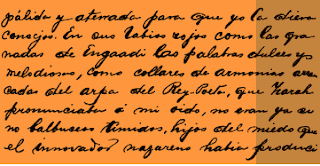 pálida y aterrada para que yo la diera
consejos. En sus labios rojos como las gra-
nadas de Engaddi las palabras dulces y
melodiosas, como collares de armonías arran-
cadas del arpa del Rey-Poeta, que Zarah
pronunciaba á mi oido, no eran ya su
no balbuceos tímidos, hijos del miedo que
el innovador nazareno había produci